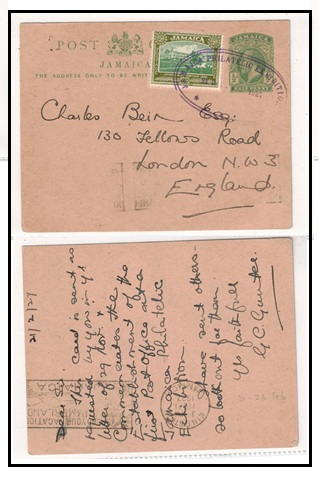 POST CARD
JAMAICA
THE ADDRESS ONLY TO BE WRITTEN
JAMAICA
JAMAICA
HALF PENNY
PHILATELIC EXHIBITION
Charles Bein Esq:
130 Fellows Road
London. N.W3
England.
21/2/27
Dear Sir,
This card is sent as
requested by you in ys
letter of 29 Nov. &
Commemorates the
Establishment of the
first Post Office at a
Jamaica Philatelic
Exhibition.
I have sent others
so look out for them.
Ys faithfully